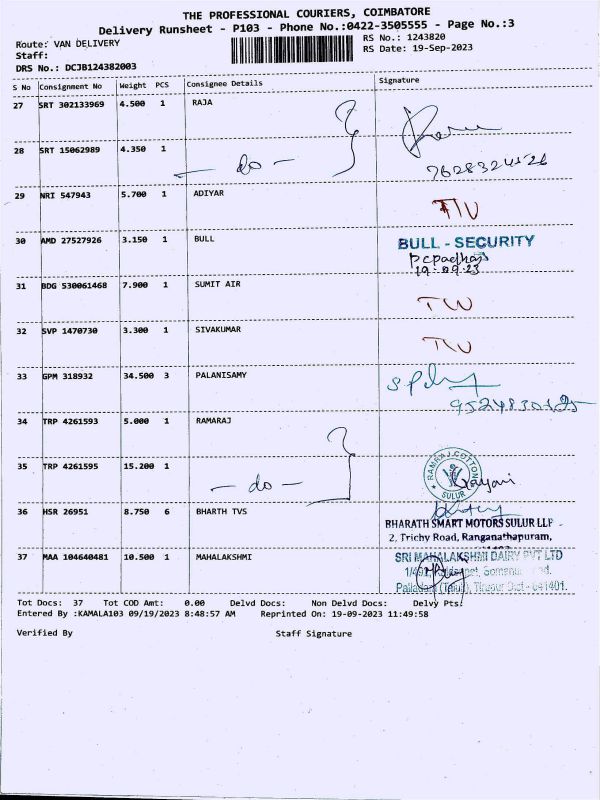 THE PROFESSIONAL COURIERS, COIMBATORE
Delivery Runsheet - P103 - Phone No.:0422-3505555 - Page No.:3
Route: VAN DELIVERY
RS No.: 1243820
Staff:
RS Date: 19-Sep-2023
DRS No.: DCJB124382003
S No Consignment No Weight PCS Consignee Details Signature
27 SRT 302133969 4.500 1 RAJA
28 SRT 15062989 4.350 1 - do -
29 NRI 547943 5.700 1 ADIYAR
30 AMD 27527926 3.150 1 BULL BULL - SECURITY
19.09.23
31 BDG 530061468 7.900 1 SUMIT AIR
32 SVP 1470730 3.300 1 SIVAKUMAR
33 GPM 318932 34.500 3 PALANISAMY
34 TRP 4261593 5.000 1 RAMARAJ
35 TRP 4261595 15.200 1 - do - RAMRAJ COTTON SULUR
36 HSR 26951 8.750 6 BHARTH TVS
BHARATH SMART MOTORS SULUR LLP
2, Trichy Road, Ranganathapuram,
37 MAA 104640481 10.500 1 MAHALAKSHMI SRI MAHALAKSHMI DAIRY PVT LTD
Palladam (Taluk), Tirupur Dist - 641401.
Tot Docs: 37 Tot COD Amt: 0.00 Delvd Docs: Non Delvd Docs: Delvy Pts:
Entered By :KAMALA103 09/19/2023 8:48:57 AM Reprinted On: 19-09-2023 11:49:58
Verified By Staff Signature